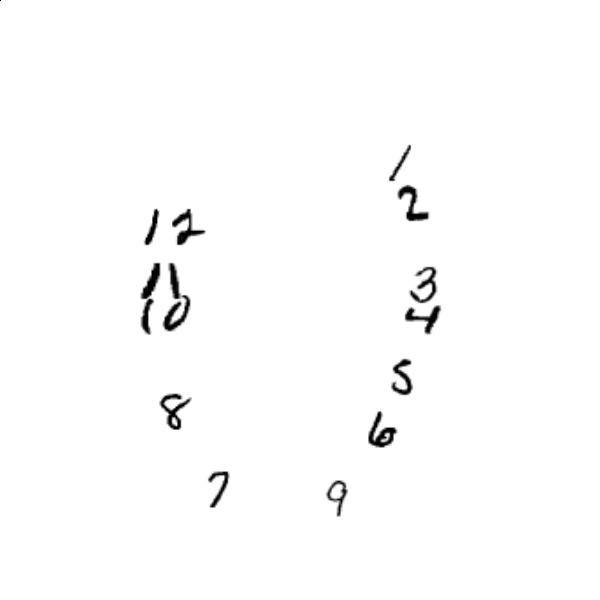 1
2
12
3
11
10
4
5
8
6
7
9